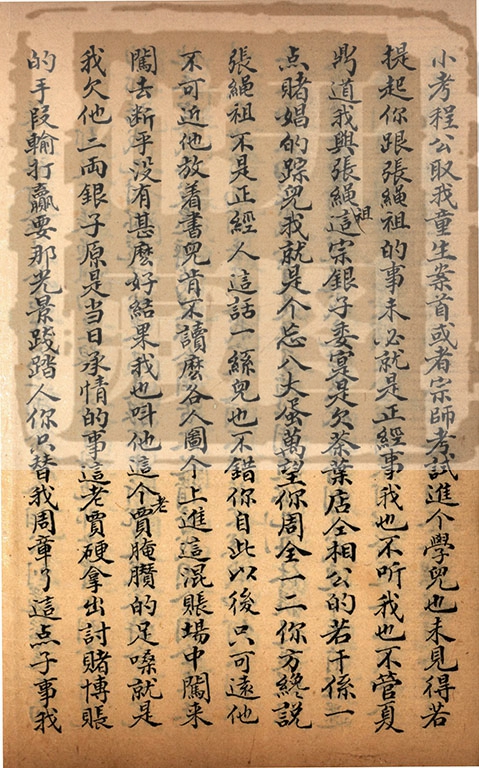 小考程公取我童生案首或者宗師考試進个學兒也未見得若
提起你跟張繩祖的事未必就是正經事我也不听我也不管夏
鼎道我與張繩祖這宗銀子委寔是欠茶葉店仝相公的若干係一
点賭娼的踪兒我就是个忘八大蛋萬望你周全一二你方終説
張繩祖不是正經人這話一絲兒也不錯你自此以後只可遠他
不可近他放着書兒肯不讀麽各人圖个上進這混賬場中闖来
闖去断乎没有甚麽好結果我也呌他這个老賈腌臢的足嗓就是
我欠他二両銀子原是当日承情的事這老賈硬拿出討賭博賬
的手段輸打贏要那光景践踏人你只替我周章了這点子事我